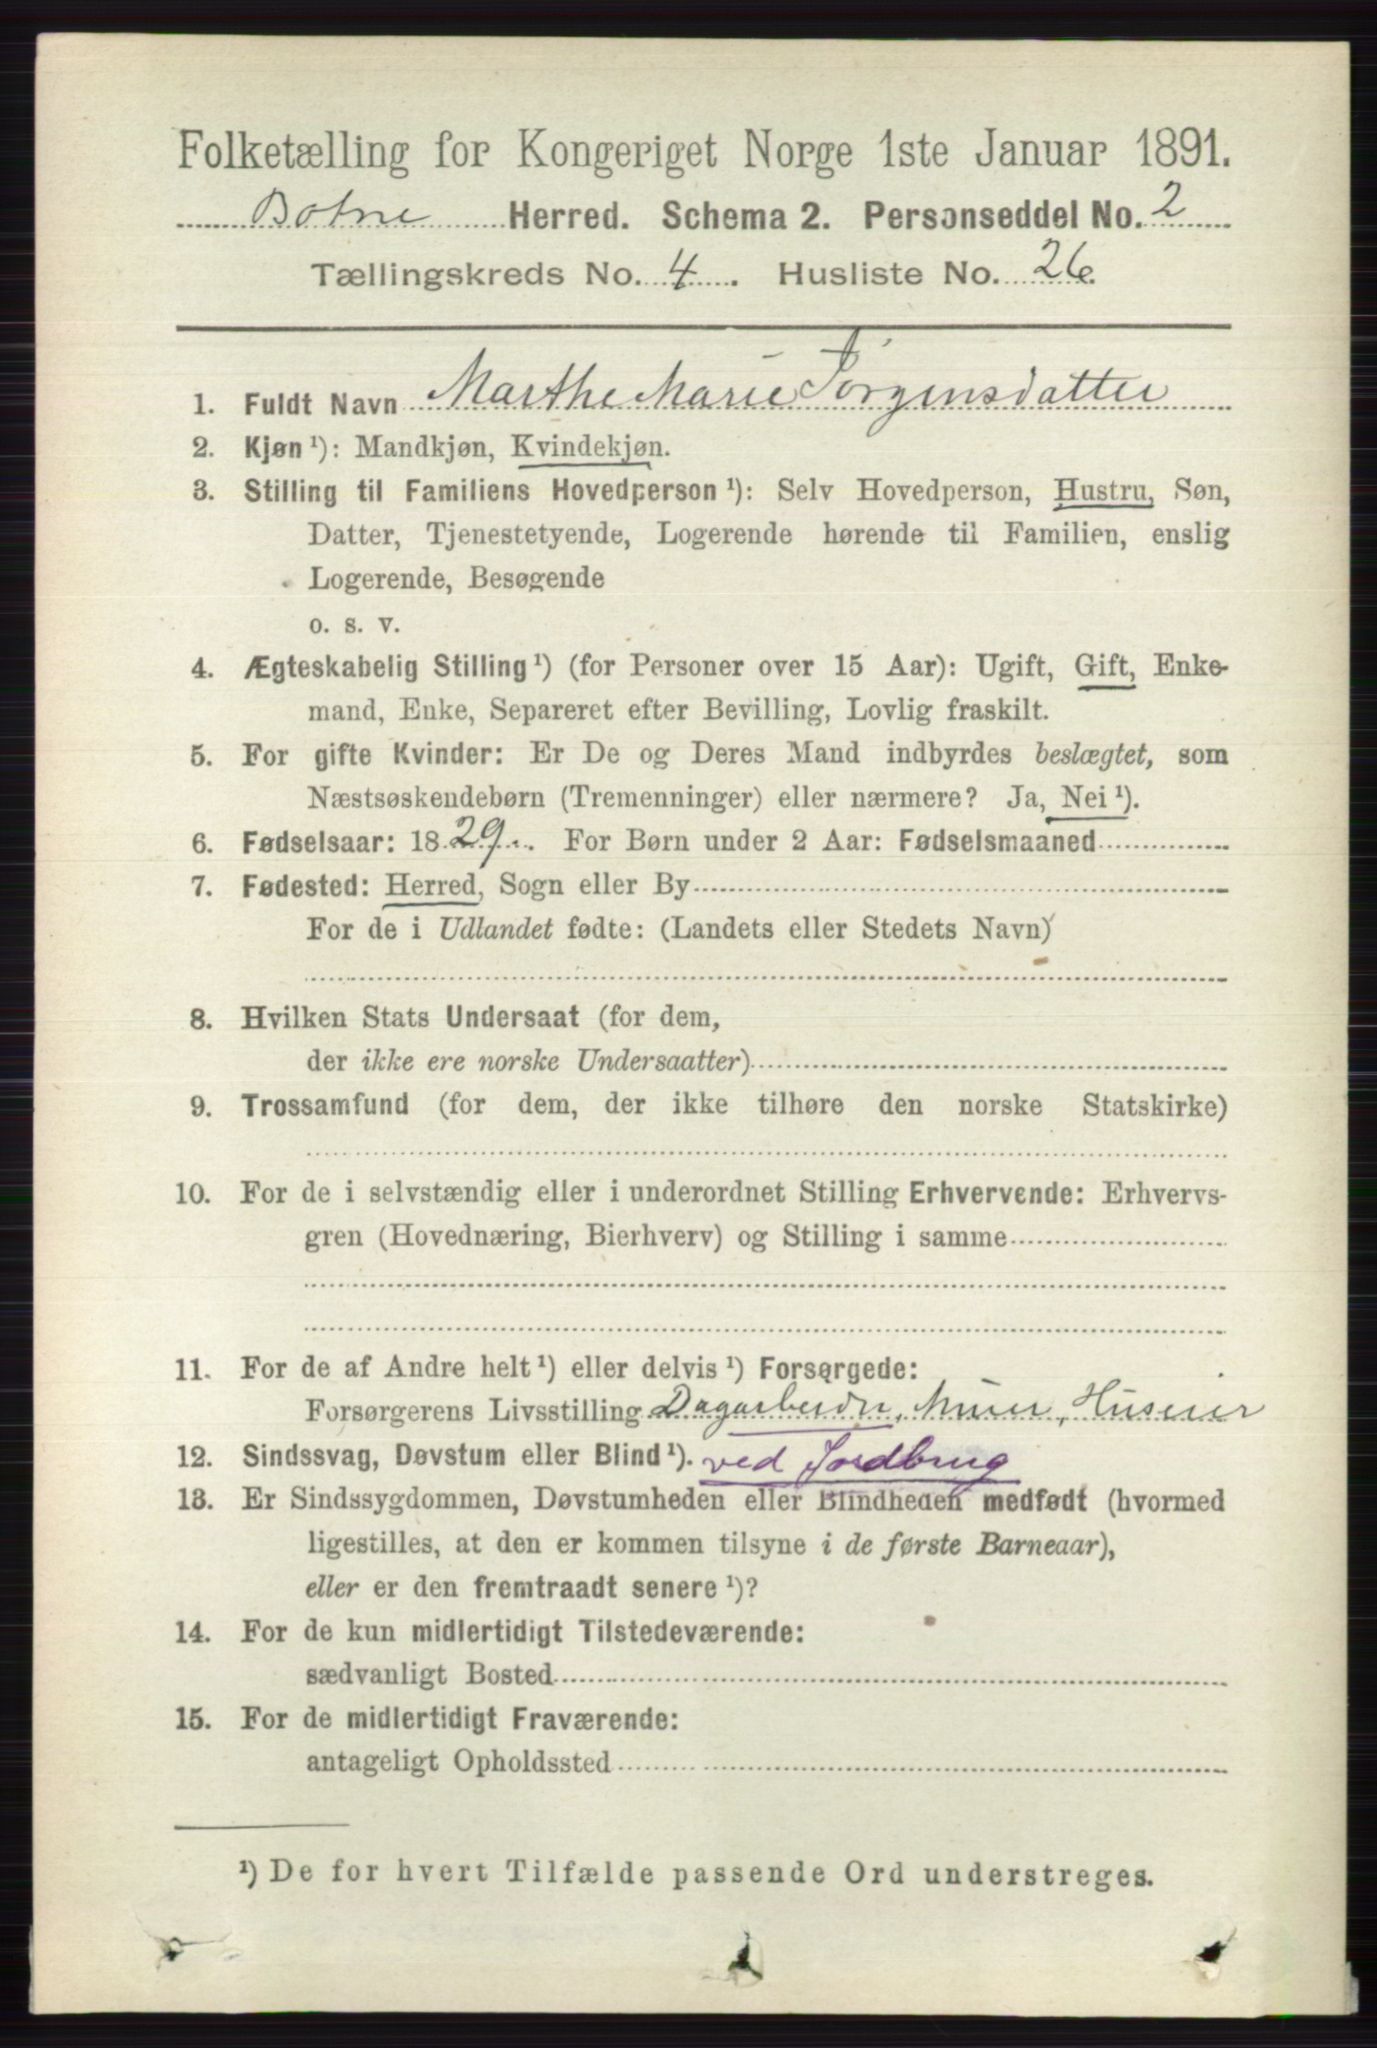 Folketælling for Kongeriget Norge 1ste Januar 1891.
Botne Herred. Schema 2. Personseddel No. 2
Tællingskreds No. 4. Husliste No. 26.
1. Fuldt Navn Marthe Marie Jörgensdatter
2. Kjøn ¹): Mandkjøn, Kvindekjøn.
3. Stilling til Familiens Hovedperson ¹): Selv Hovedperson, Hustru, Søn,
Datter, Tjenestetyende, Logerende hørende til Familien, enslig
Logerende, Besøgende
o. s. v.
4. Ægteskabelig Stilling ¹) (for Personer over 15 Aar): Ugift, Gift, Enke-
mand, Enke, Separeret efter Bevilling, Lovlig fraskilt.
5. For gifte Kvinder: Er De og Deres Mand indbyrdes beslægtet, som
Næstsøskendebørn (Tremenninger) eller nærmere? Ja, Nei ¹).
6. Fødselsaar: 1829. For Børn under 2 Aar: Fødselsmaaned
7. Fødested: Herred, Sogn eller By
For de i Udlandet fødte: (Landets eller Stedets Navn)
8. Hvilken Stats Undersaat (for dem,
der ikke ere norske Undersaatter)
9. Trossamfund (for dem, der ikke tilhøre den norske Statskirke)
10. For de i selvstændig eller i underordnet Stilling Erhvervende: Erhvervs-
gren (Hovednæring, Bierhverv) og Stilling i samme
11. For de af Andre helt ¹) eller delvis ¹) Forsørgede:
Forsørgerens Livsstilling Dagarbeider, Murer, Huseier
12. Sindssvag, Døvstum eller Blind ¹). ved Jordbrug
13. Er Sindssygdommen, Døvstumheden eller Blindheden medfødt (hvormed
ligestilles, at den er kommen tilsyne i de første Barneaar),
eller er den fremtraadt senere ¹)?
14. For de kun midlertidigt Tilstedeværende:
sædvanligt Bosted
15. For de midlertidigt Fraværende:
antageligt Opholdssted
¹) De for hvert Tilfælde passende Ord understreges.